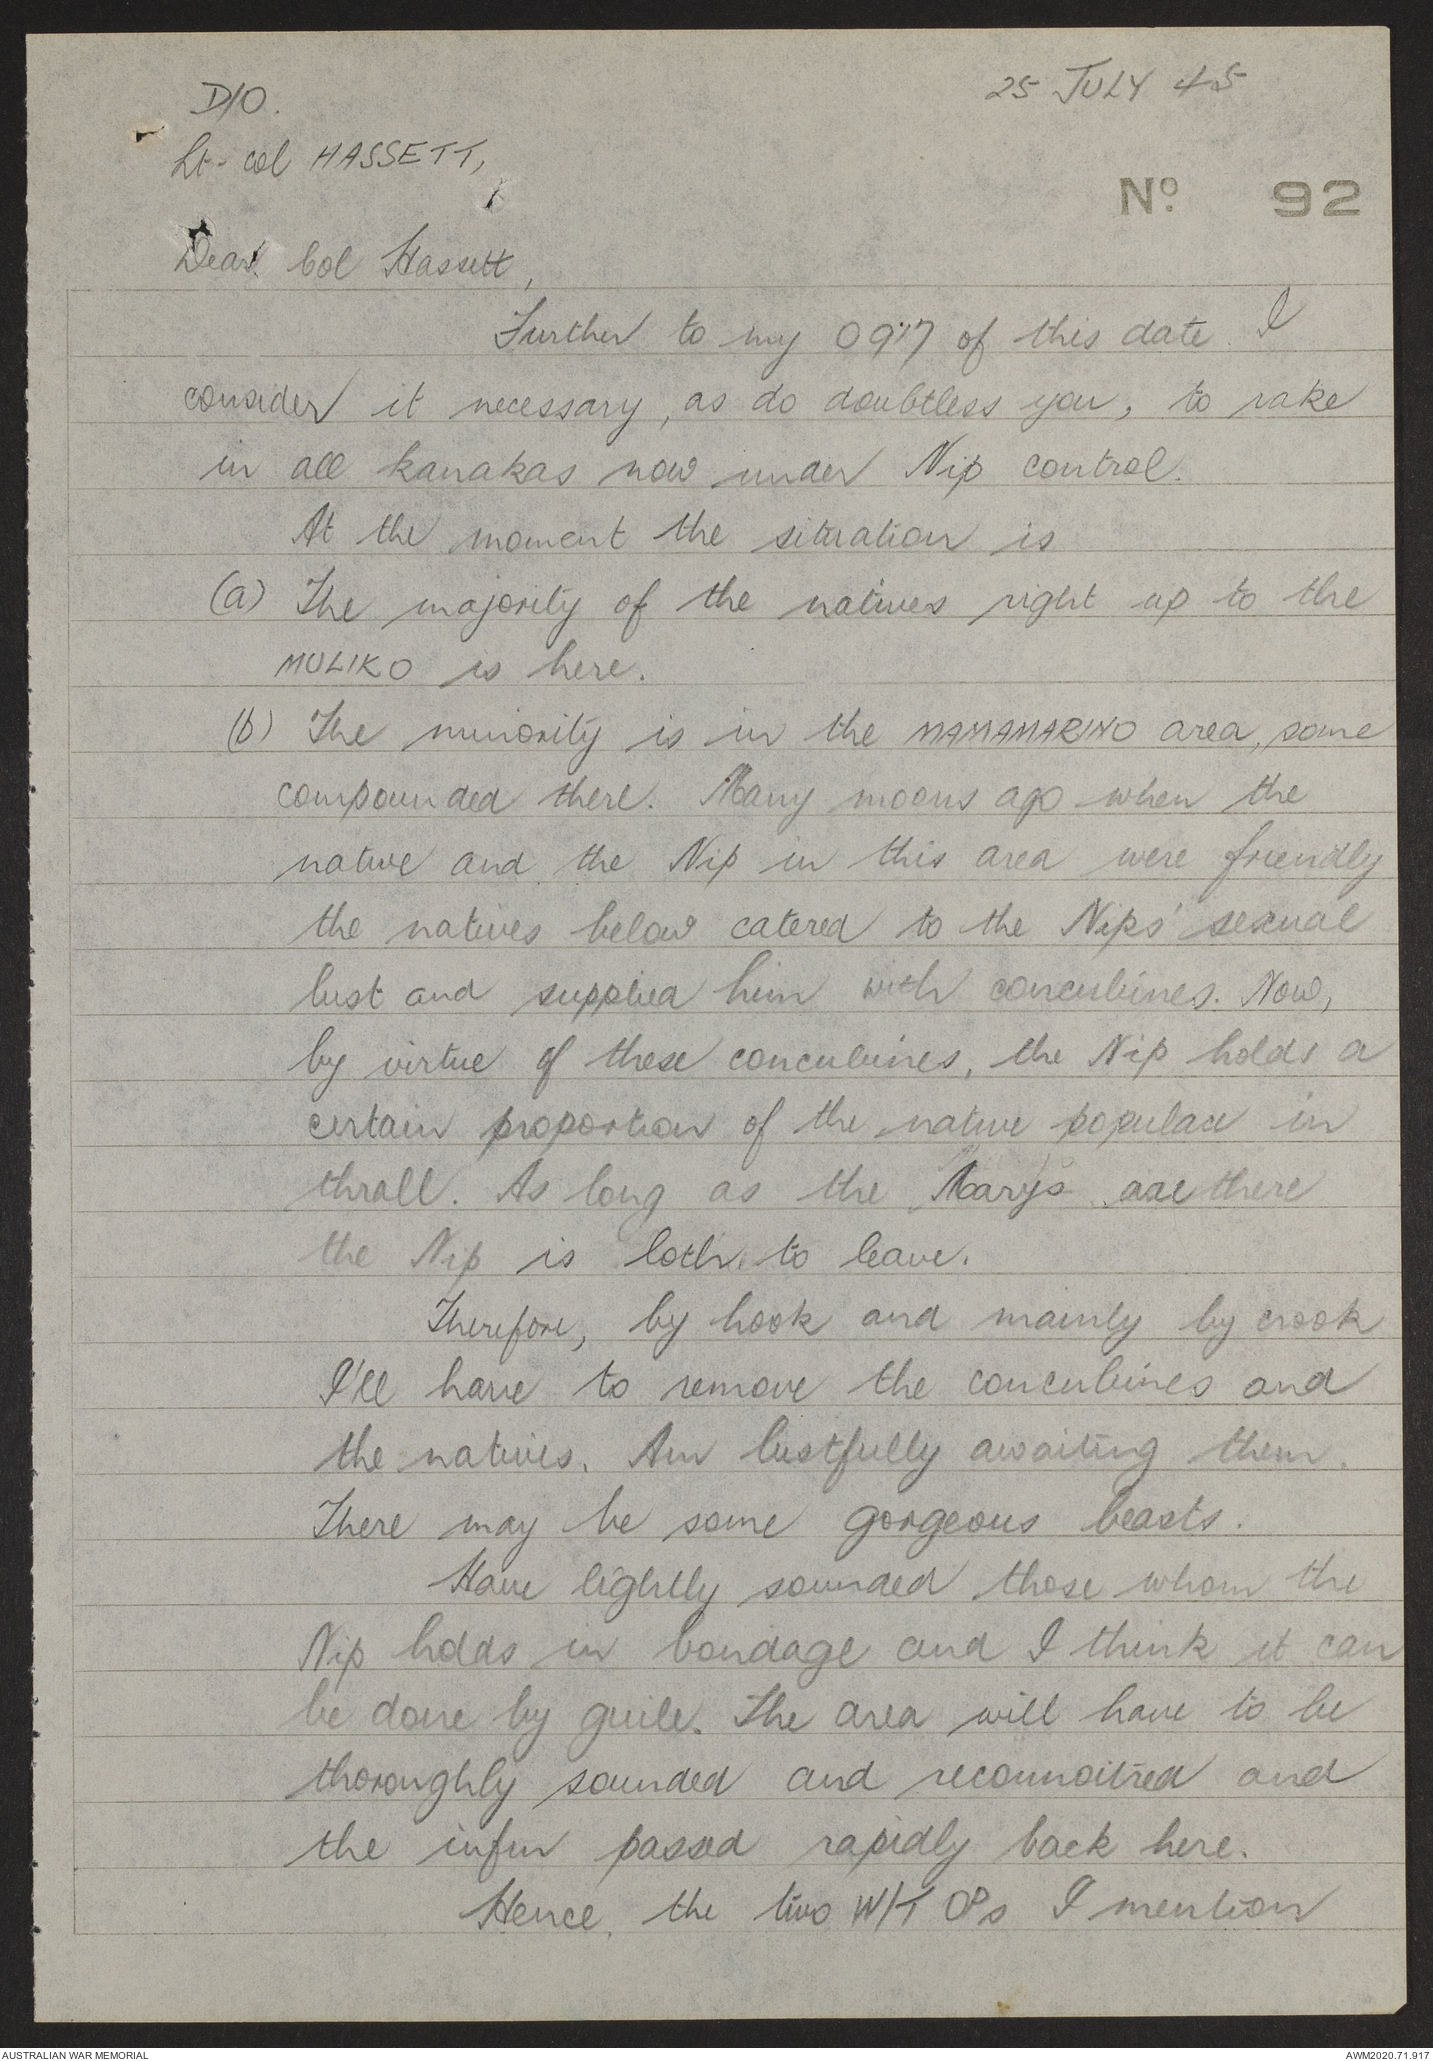 D/O.
25 JULY 45
Lt-Col HASSETT,
No. 92
Dear Col Hassett,
Further to my 0917 of this date I
consider it necessary, as do doubtless you, to rake
in all kanakas now under Nip control.
At the moment the situation is
(a) The majority of the natives right up to the
MULIKO is here.
(b) The minority is in the MAMAMARINO area, some
compounded there. Many moons ago when the
native and the Nip in this area were friendly
the natives below catered to the Nips' sexual
lust and supplied him with concubines. Now,
by virtue of these concubines, the Nip holds a
certain proportion of the native populace in
thrall. As long as the Marys are there
the Nip is loth to leave.
Therefore, by hook and mainly by crook
I'll have to remove the concubines and
the natives. Am lustfully awaiting them.
There may be some gorgeous beasts.
Have lightly sounded those whom the
Nip holds in bondage and I think it can
be done by guile. The area will have to be
thoroughly sounded and reconnoitred and
the infm passed rapidly back here.
Hence, the two W/T OPs I mention
AUSTRALIAN WAR MEMORIAL
AWM2020.71.917